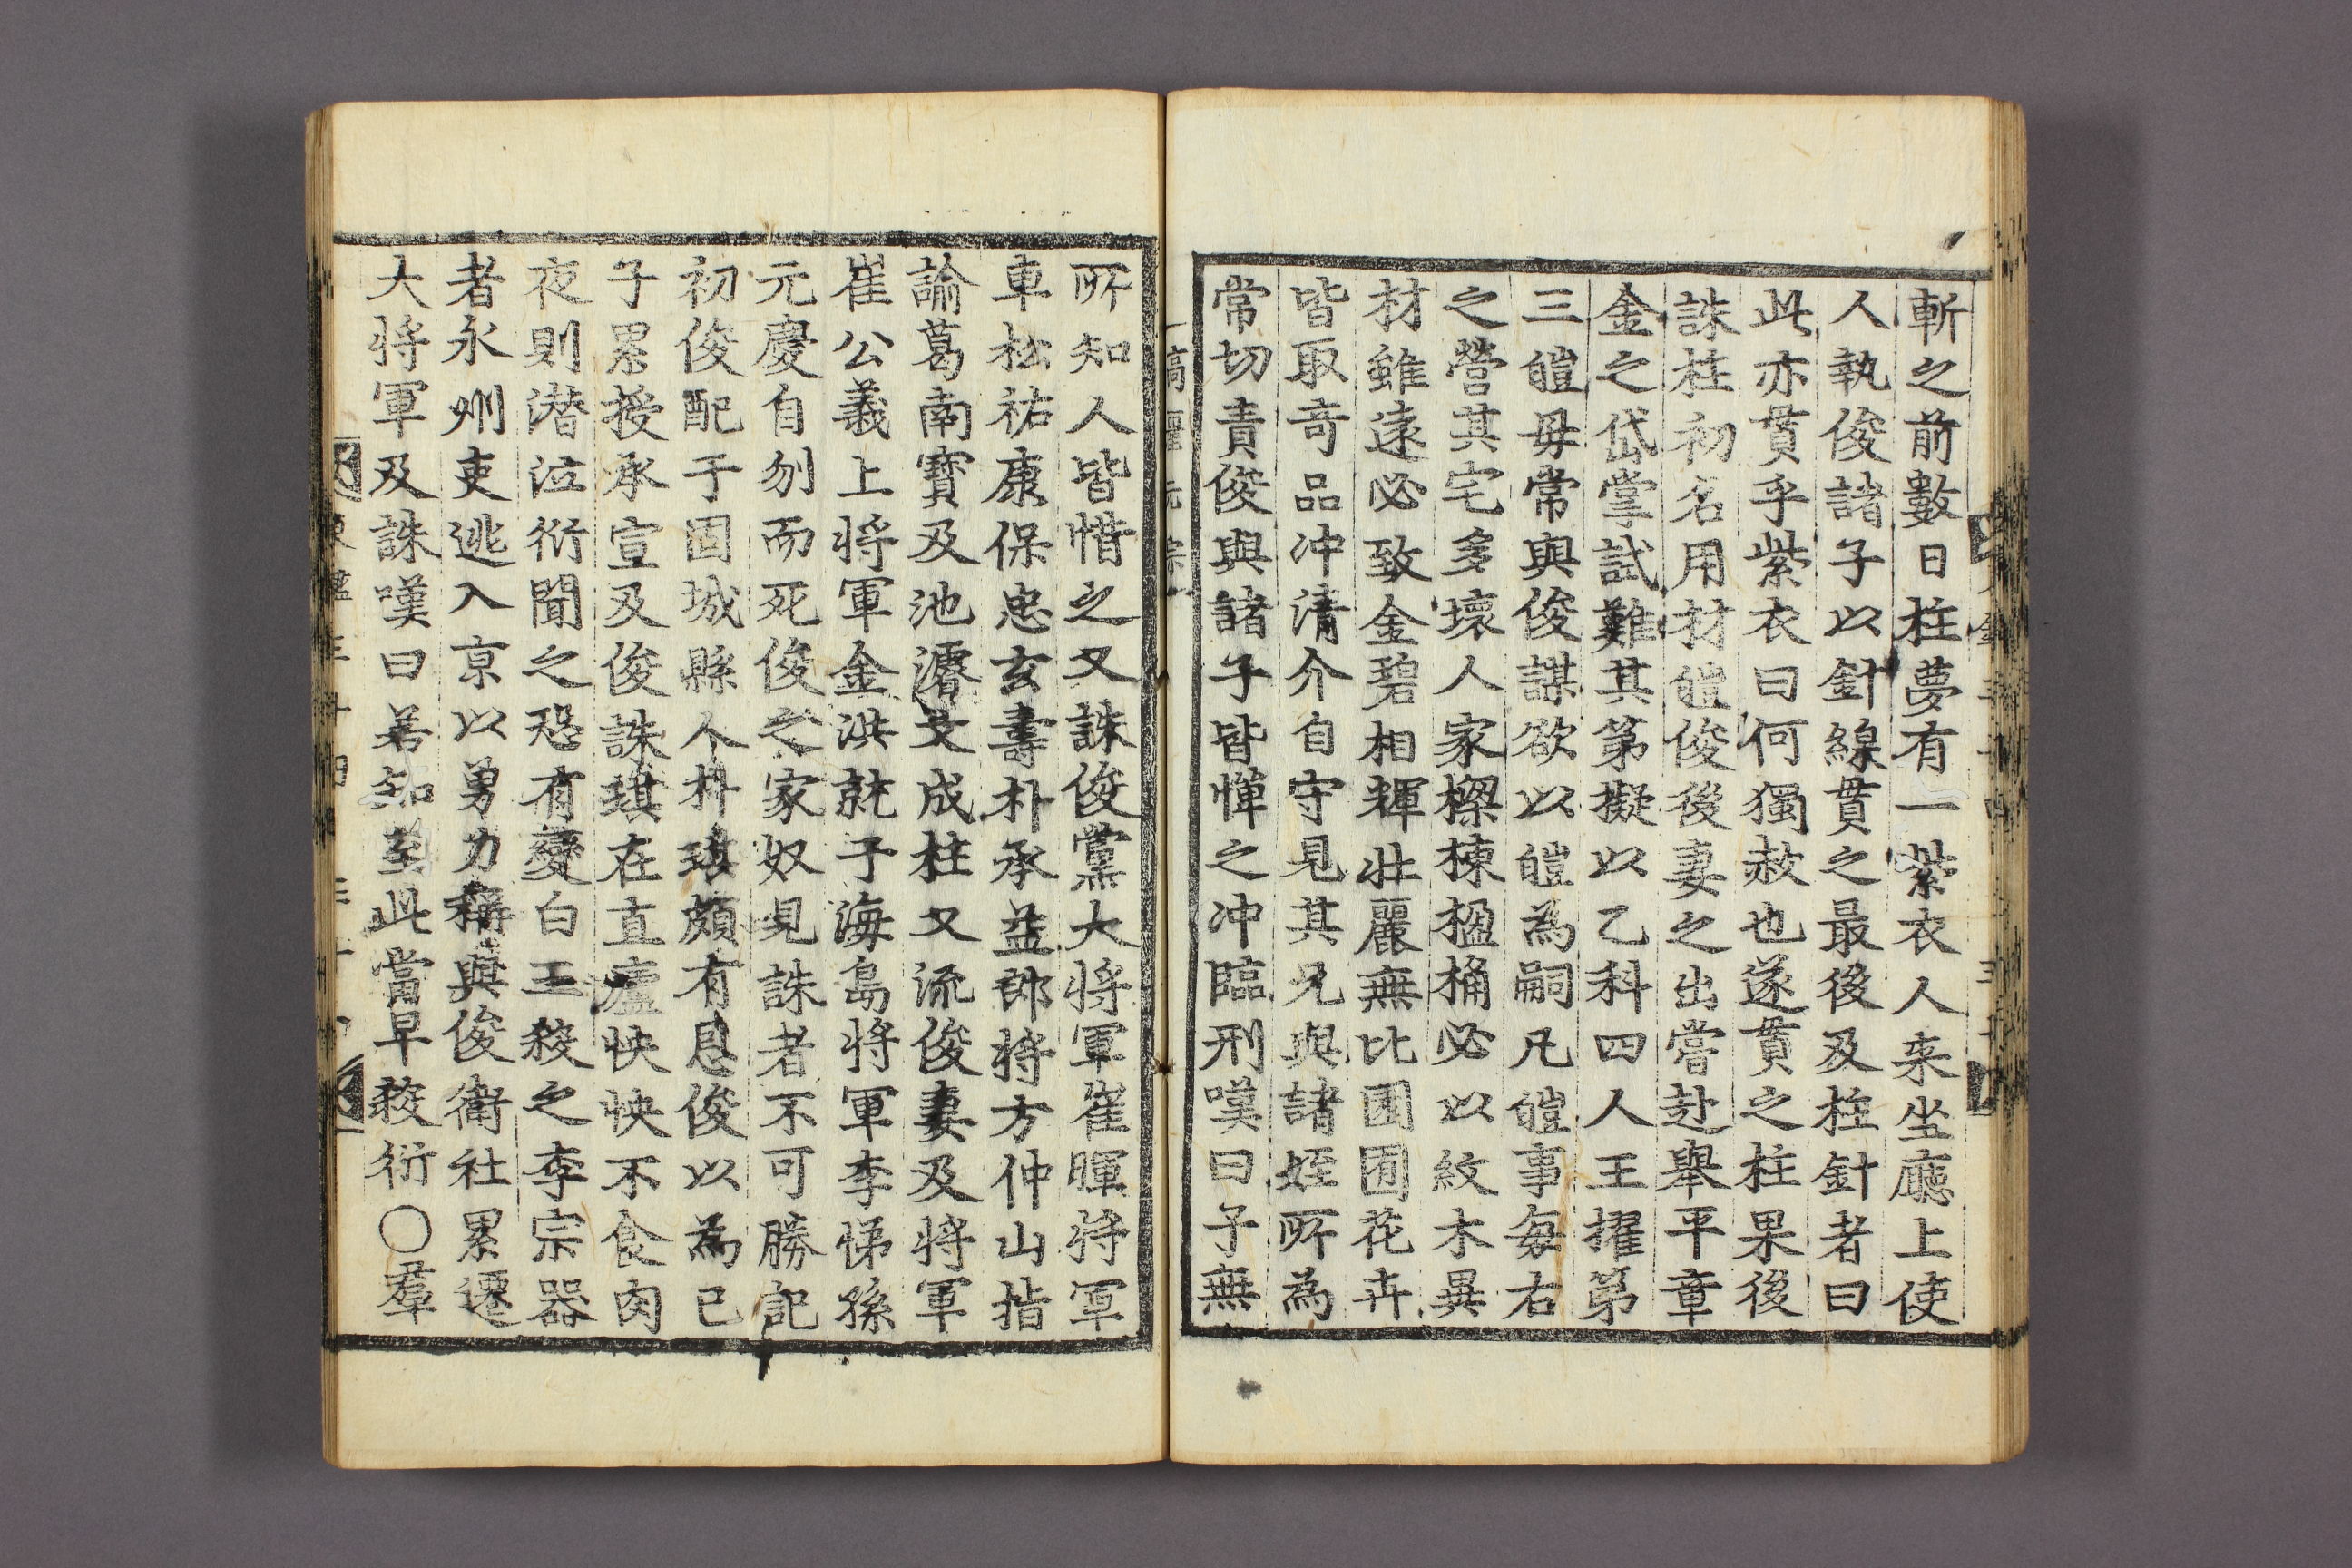 斬之前數日柱夢有一紫衣人来坐廳上使
人執俊諸子以針線貫之最後及柱針者曰
此亦貫乎紫衣曰何獨赦也遂貫之柱果後
誅柱初名用材皚俊後妻之出嘗赴舉平章
金之岱掌試難其第擬以乙科四人王擢第
三皚毋常與俊謀欲以皚為嗣凡皚事每右
之營其宅多壞人家樑棟楹桷必以紋木異
材雖遠必致金碧相輝壯麗無比園囿花卉
皆取奇品冲清介自守見其兄與諸姪所為
常切責俊與諸子皆憚之冲臨刑嘆曰子無
高麗 元宗
所知人皆惜之又誅俊黨大将軍崔暉将軍
車松祐康保忠玄壽朴承益郎将方仲山指
諭葛南寶及池濬文成柱又流俊妻及将軍
崔公義上将軍金洪就于海島将軍李悌孫
元慶自刎而死俊之家奴見誅者不可勝記
初俊配于固城縣人朴琪頗有恩俊以為己
子累授承宣及俊誅琪在直廬怏怏不食肉
夜則潜泣衍聞之恐有變白王殺之李宗器
者永州吏逃入京以勇力稱與俊衛社累遷
大将軍及誅嘆曰若知至此當早殺衍〇羣